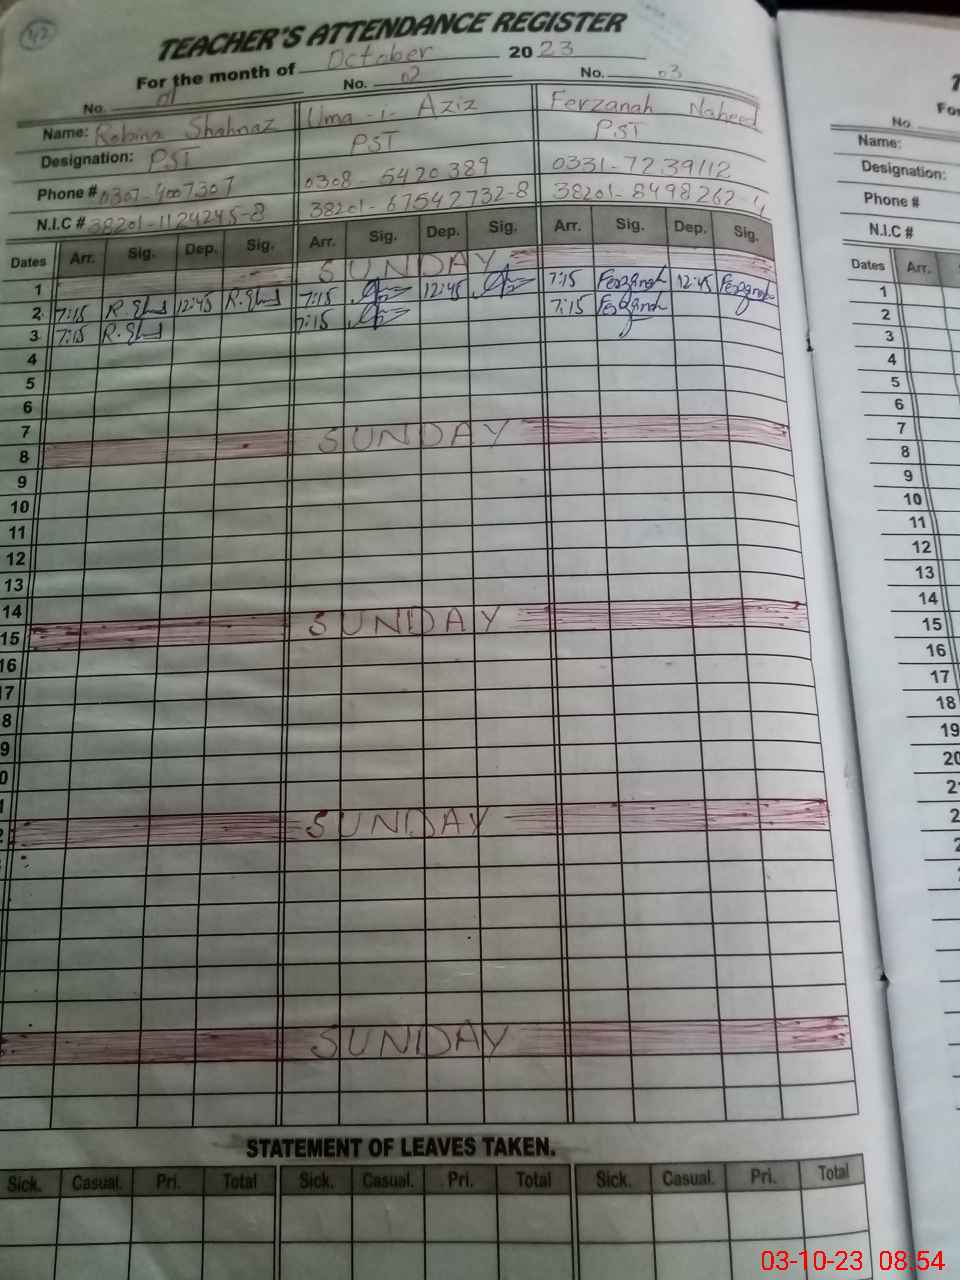 42
TEACHER'S ATTENDANCE REGISTER
For the month of October 2023
No. 01 No. 02 No. 03
Name: Robina Shahnaz Uma-i-Aziz Ferzanah Naheed
Designation: PST PST PST
Phone # 0307-4007307 0308-5420389 0331-7239112
N.I.C # 38201-1124245-8 38201-67542732-8 38201-8498262-4
Dates Arr. Sig. Dep. Sig. Arr. Sig. Dep. Sig. Arr. Sig. Dep. Sig.
1 SUNDAY
2 7:15 12:45 7:15 12:45 7:15 Ferzanah 12:45 Ferzanah
3 7:15 7:15 7:15 Ferzanah
4
5
6
7
8 SUNDAY
9
10
11
12
13
14
15 SUNDAY
16
17
8
9
0
1
2 SUNDAY
SUNDAY
STATEMENT OF LEAVES TAKEN.
Sick. Casual. Pri. Total Sick. Casual. Pri. Total Sick. Casual. Pri. Total
For
No.
Name:
Designation:
Phone #
N.I.C #
Dates Arr.
1
2
3
4
5
6
7
8
9
10
11
12
13
14
15
16
17
18
19
20
2
2
2
03-10-23 08:54